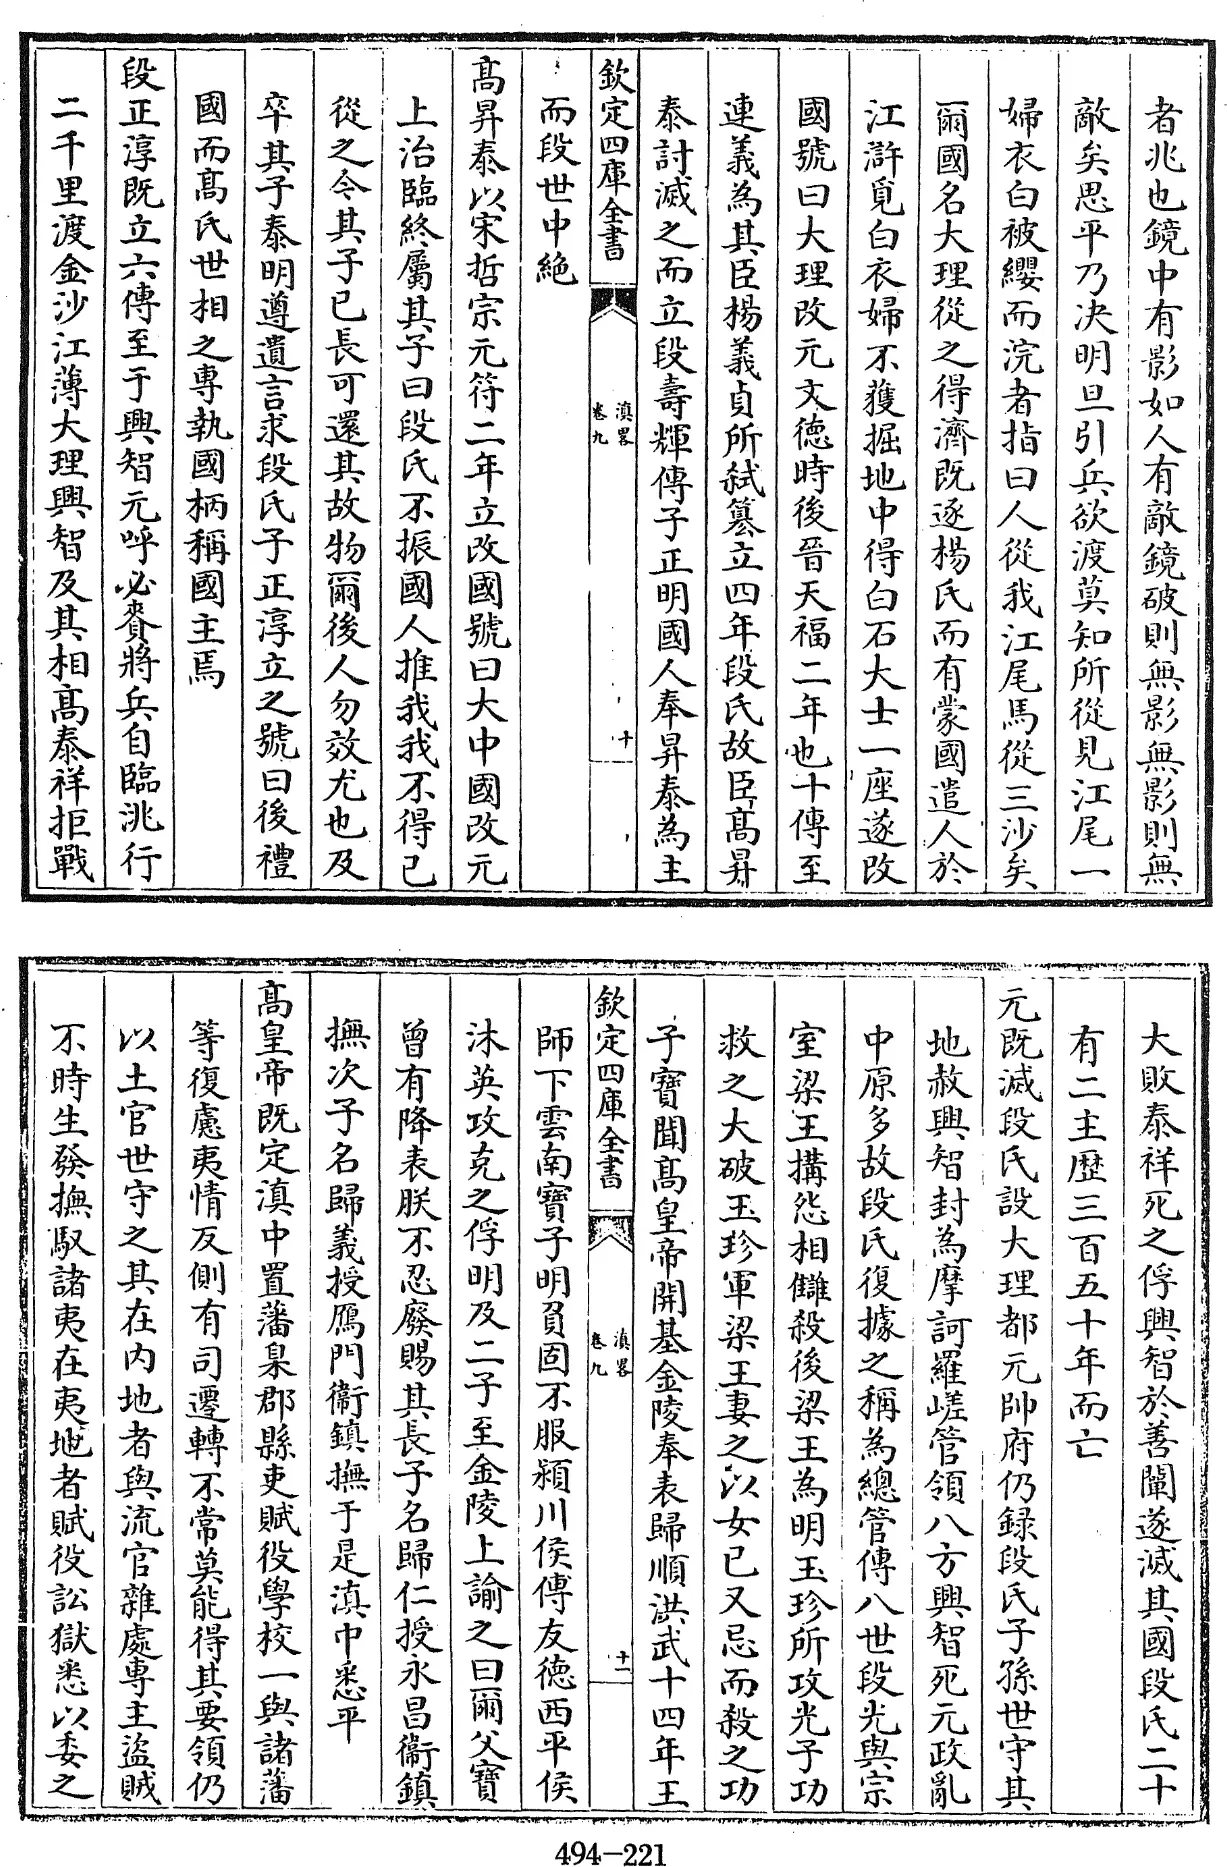 者兆也鏡中有影如人有敵鏡破則無影無影則無
敵矣思平乃决明旦引兵欲渡莫知所從見江尾一
婦衣白被纓而浣者指曰人從我江尾馬從三沙矣
爾國名大理從之得濟既逐楊氏而有蒙國遣人於
江滸覓白衣婦不獲掘地中得白石大士一座遂改
國號曰大理改元文德時後晉天福二年也十傳至
連義為其臣楊義貞所弑簒立四年段氏故臣髙昇
泰討滅之而立段壽輝傳子正明國人奉昇泰為主
欽定四庫全書
滇畧
卷九
十
而段世中絶
髙昇泰以宋哲宗元符二年立改國號曰大中國改元
上治臨終屬其子曰段氏不振國人推我我不得已
從之今其子已長可還其故物爾後人勿效尤也及
卒其子泰明遵遺言求段氏子正淳立之號曰後禮
國而髙氏世相之專執國柄稱國主焉
段正淳既立六傳至于興智元呼必賚將兵自臨洮行
二千里渡金沙江薄大理興智及其相髙泰祥拒戰
大敗泰祥死之俘興智於善闡遂滅其國段氏二十
有二主歴三百五十年而亡
元既滅段氏設大理都元帥府仍録段氏子孫世守其
地赦興智封為摩訶羅嵯管領八方興智死元政亂
中原多故段氏復據之稱為總管傳八世段光與宗
室梁王搆怨相讎殺後梁王為明玉珍所攻光子功
救之大破玉珍軍梁王妻之以女已又忌而殺之功
子寶聞髙皇帝開基金陵奉表歸順洪武十四年王
欽定四庫全書
滇畧
卷九
十一
師下雲南寶子明負固不服潁川侯傅友德西平侯
沐英攻克之俘明及二子至金陵上諭之曰爾父寶
曾有降表朕不忍廢賜其長子名歸仁授永昌衞鎮
撫次子名歸義授鴈門衞鎮撫于是滇中悉平
髙皇帝既定滇中置藩臬郡縣吏賦役學校一與諸藩
等復慮夷情反側有司遷轉不常莫能得其要領仍
以土官世守之其在内地者與流官雜處專主盜賊
不時生發撫馭諸夷在夷地者賦役訟獄悉以委之
494-221